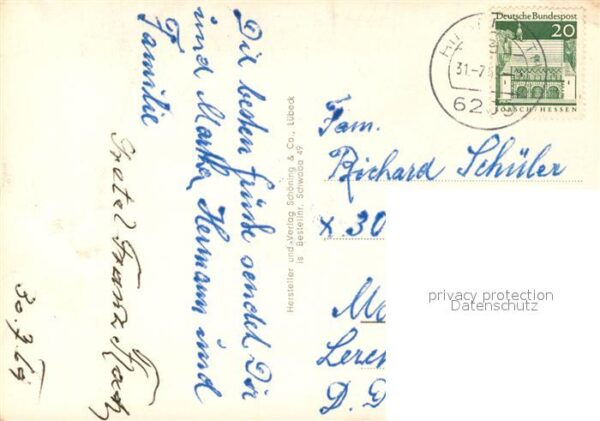 Die besten Grüße sendet Dir
und Martha, Hermann und
Familie
Gretel Franz
30.7.69
Hersteller und Verlag Schöning & Co., Lübeck
is Bestellnr. Schwaba 49
Deutsche Bundespost
20
LORSCH/HESSEN
31.-7.
Fam.
Richard Schüler
x 30
D.
privacy protection
Datenschutz